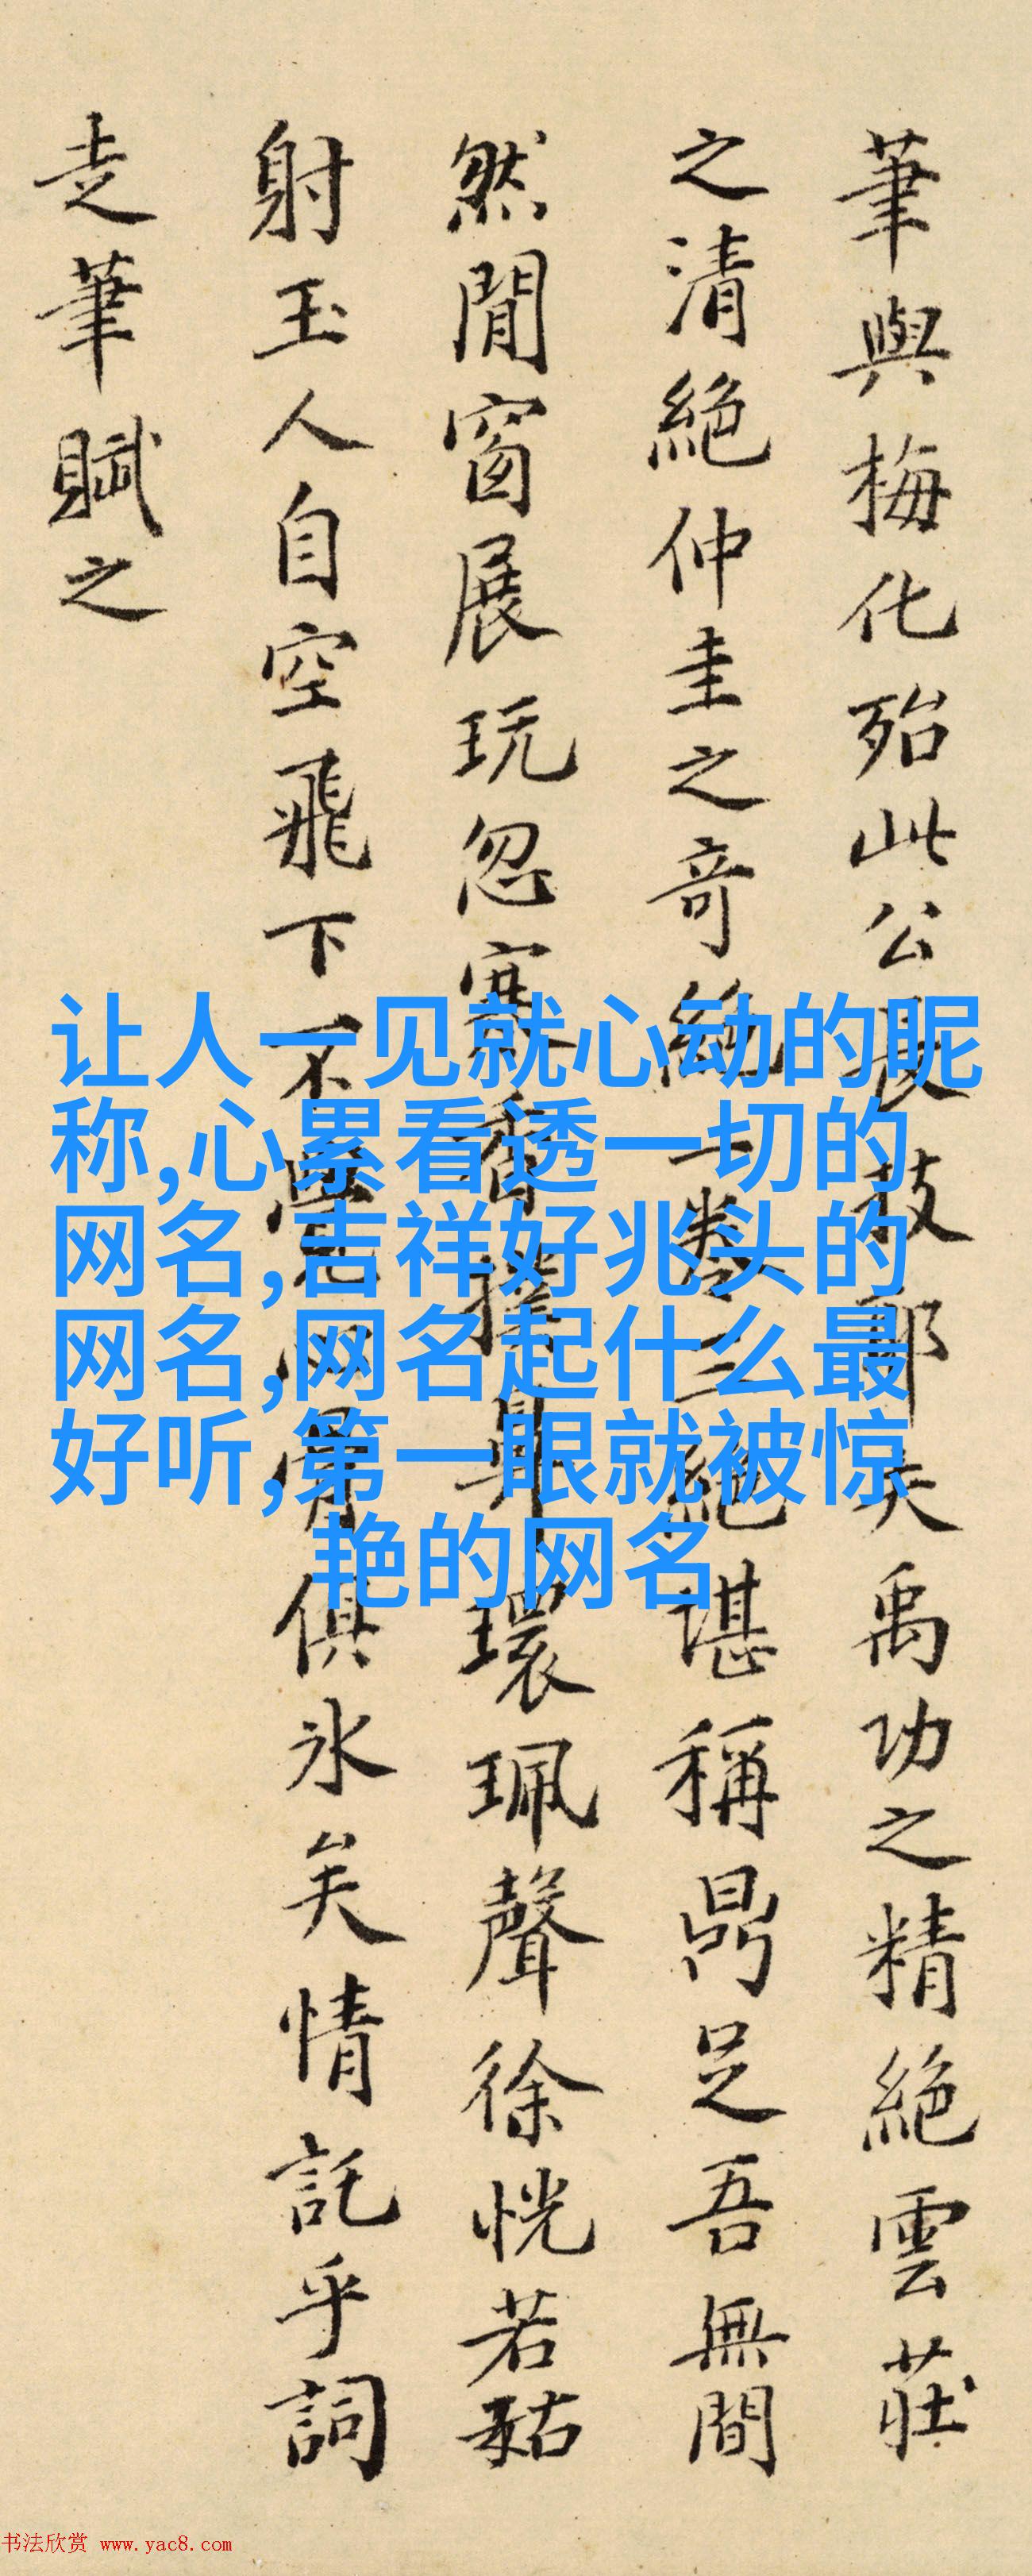 筆與梅化殆此公長技郭夫禹功之精絕雲莊
之清絕仲圭之奇絕一卷三絕堪稱鼎足吾無間
然閒窗展玩忽寒香撲鼻環珮聲徐恍若藐姑
射玉人自空飛下不覺心骨俱冰矣情託乎詞
走筆賦之
让人一见就心动的昵
称,心累看透一切的
网名,吉祥好兆头的
网名,网名起什么最
好听,第一眼就被惊
艳的网名
书法欣赏 www.yac8.com